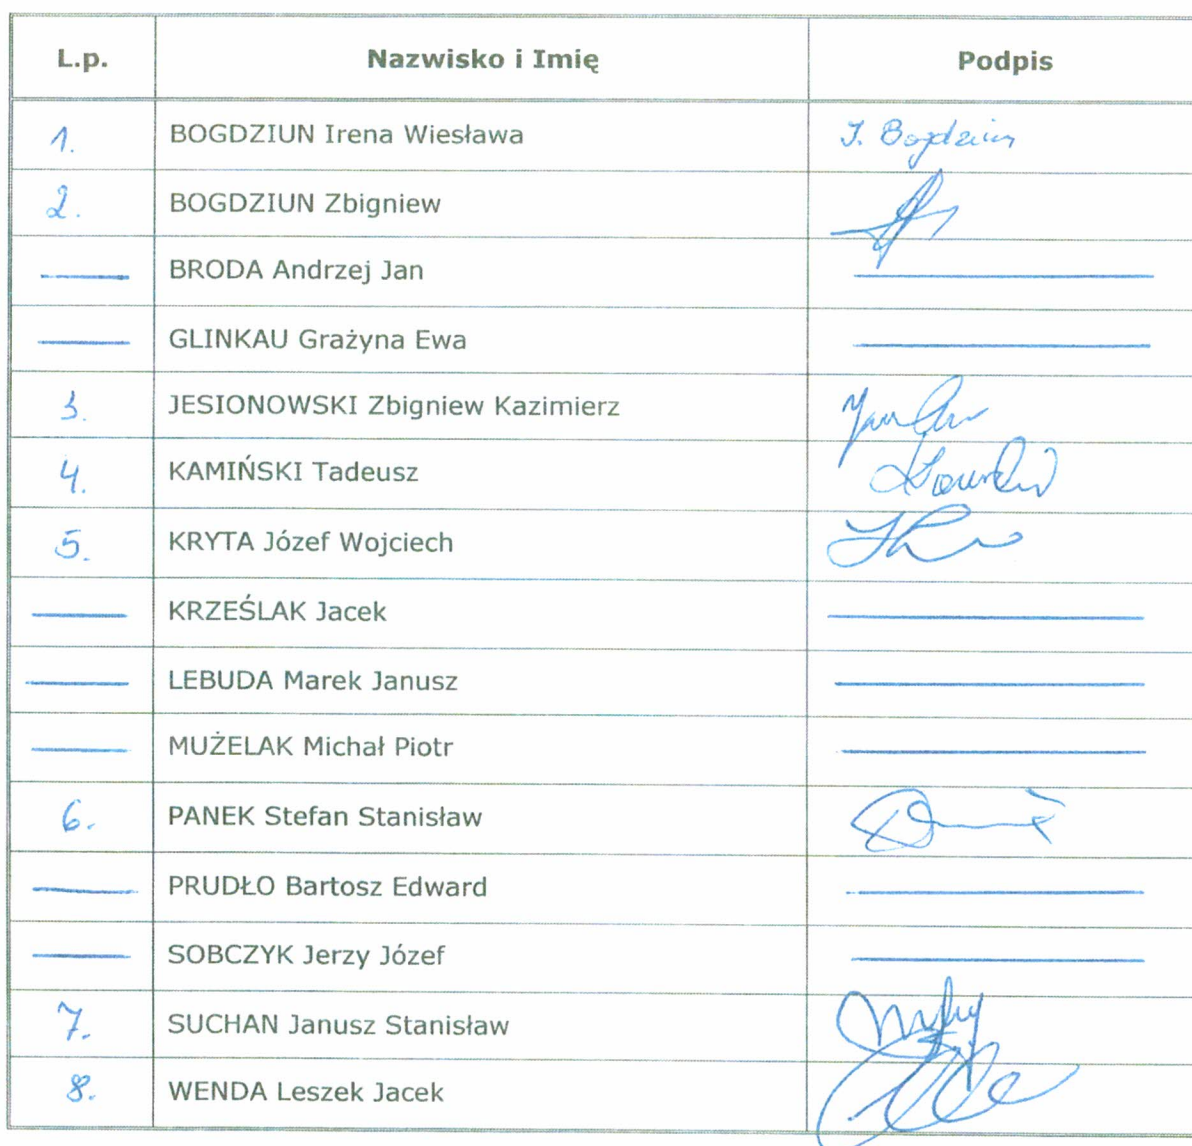 L.p. Nazwisko i Imię Podpis
1. BOGDZIUN Irena Wiesława I. Bogdziun
2. BOGDZIUN Zbigniew
BRODA Andrzej Jan
GLINKAU Grażyna Ewa
3. JESIONOWSKI Zbigniew Kazimierz
4. KAMIŃSKI Tadeusz
5. KRYTA Józef Wojciech
KRZEŚLAK Jacek
LEBUDA Marek Janusz
MUŻELAK Michał Piotr
6. PANEK Stefan Stanisław
PRUDŁO Bartosz Edward
SOBCZYK Jerzy Józef
7. SUCHAN Janusz Stanisław
8. WENDA Leszek Jacek